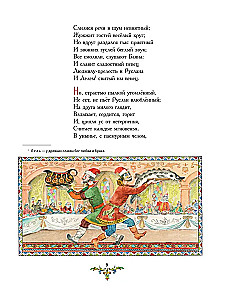 Слилися речи в шум невнятный;
Жужжит гостей весёлый круг;
Но вдруг раздался глас приятный
И звонких гуслей беглый звук;
Все смолкли, слушают Баяна:
И славит сладостный певец
Людмилу-прелесть и Руслана
И Лелем¹ свитый им венец.
Но, страстью пылкой утомлённый,
Не ест, не пьёт Руслан влюблённый;
На друга милого глядит,
Вздыхает, сердится, горит
И, щипля ус от нетерпенья,
Считает каждые мгновенья.
В унынье, с пасмурным челом,